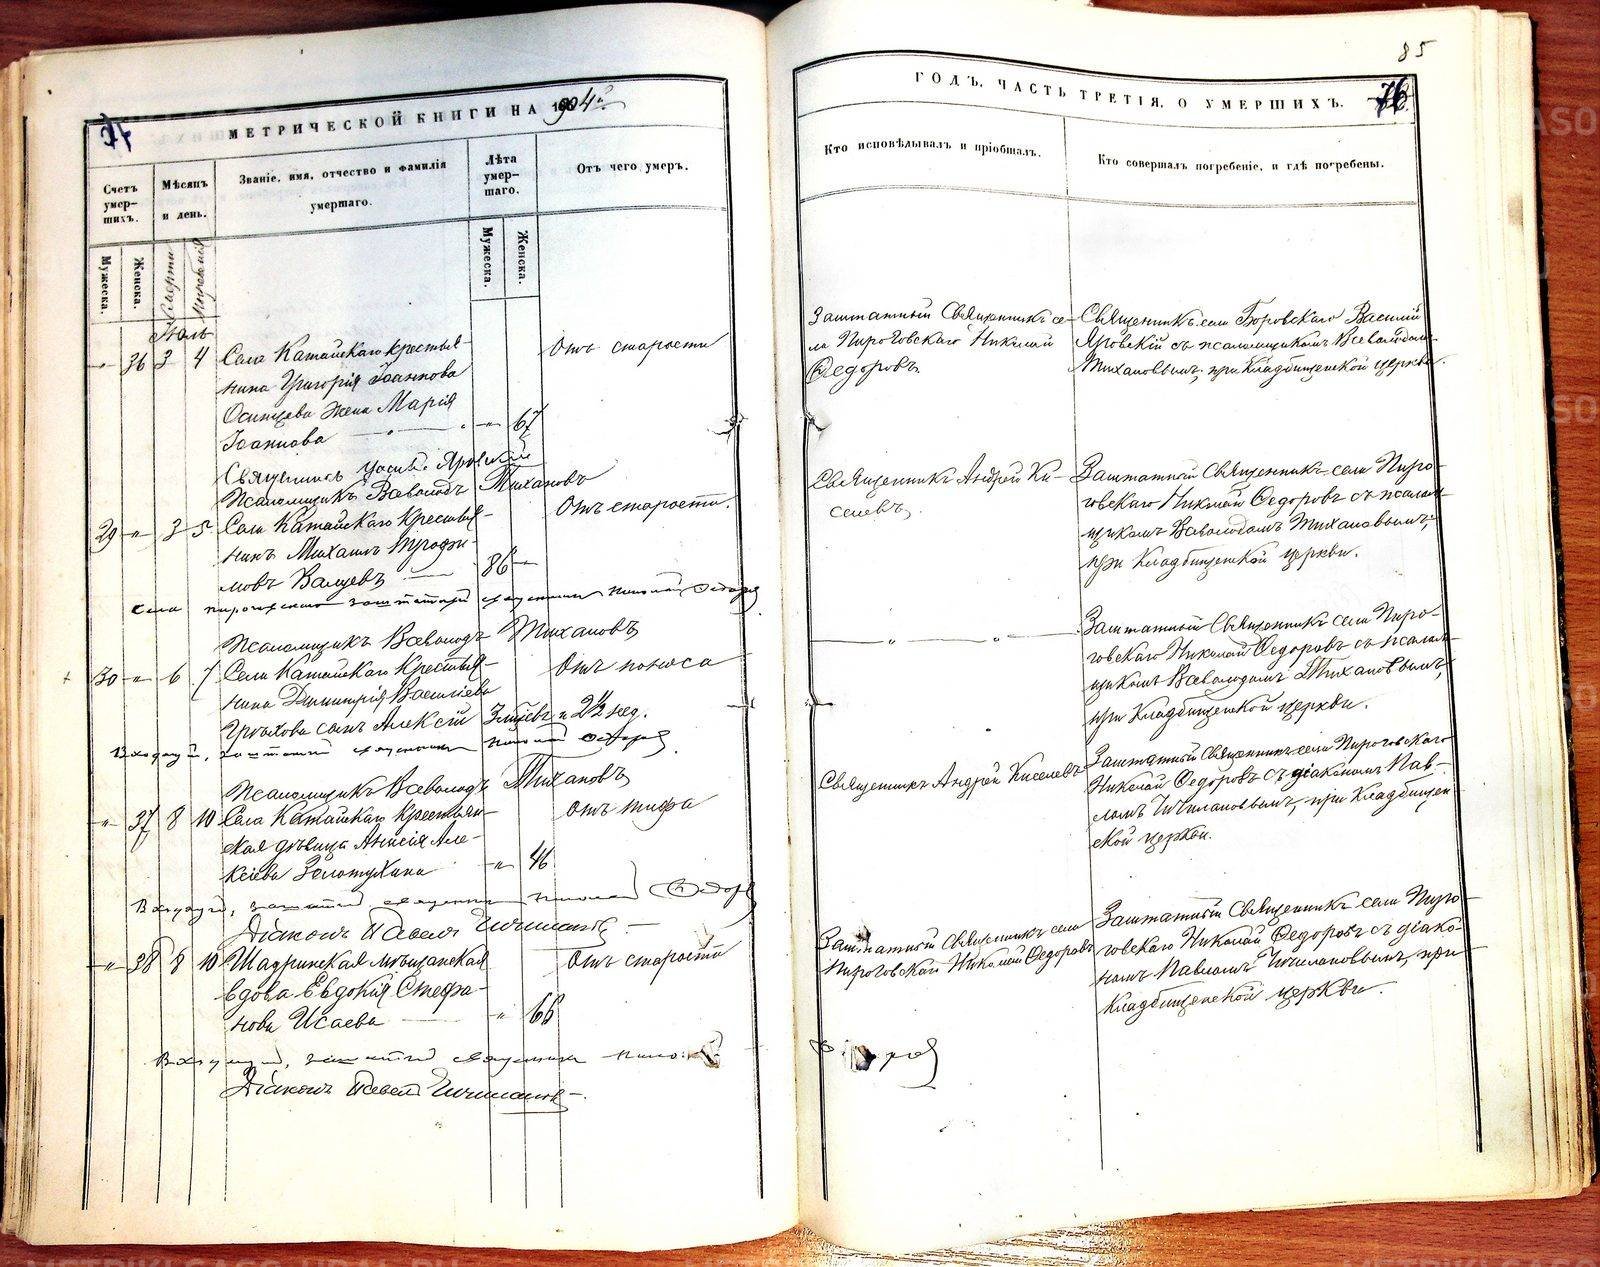 85
МЕТРИЧЕСКОЙ КНИГИ НА 1904 г.
Счетъ умер-
шихъ.
Мѣсяцъ
и день.
Званіе, имя, отчество и фамилія
умершаго.
Лѣта
умер-
шаго.
Отъ чего умеръ.
Мужеска.
Женска.
Смерти
Погребенія
Мужеска.
Женска.
Іюль
36 3 4 Села Катайскаго крестья-
нина Григорія Іоаннова
Осинцева жена Марія
Іоаннова 67
Отъ старости
Священникъ Яровскій
Псаломщикъ Всеволодъ Тихановъ
29 3 5 Села Катайскаго Крестья-
нинъ Михаилъ Трофи-
мовъ 86
Отъ старости.
Села Пироговскаго заштатный священникъ Николай Федоровъ
Псаломщикъ Всеволодъ Тихановъ
30 6 7 Села Катайскаго Крестья-
нина Димитрія Васильева
Грѣхова сынъ Алексій 3 мѣсяц. и 2½ нед.
Отъ поноса
заштатный священникъ Николай Федоровъ
Псаломщикъ Всеволодъ Тихановъ
37 8 10 Села Катайскаго Крестьян-
ская дѣвица Анисія Але-
ксіева Золотухина 46
Отъ тифа
заштатный священникъ Николай Федоровъ
Діаконъ Павелъ Чичилановъ
38 8 10 Шадринская мѣщанская
вдова Евдокія Стефа-
нова Исаева 66
Отъ старости
заштатный священникъ Николай Федоровъ
Діаконъ Павелъ Чичилановъ
ГОДЪ, ЧАСТЬ ТРЕТІЯ, О УМЕРШИХЪ.
76
Кто исповѣдывалъ и пріобщалъ.
Кто совершалъ погребеніе, и гдѣ погребены.
Заштатный Священникъ се-
ла Пироговскаго Николай
Федоровъ
Священникъ села Боровскаго Василій
Яровскій съ псаломщикомъ Всеволодомъ
Тихановымъ, при Кладбищенской церкви.
Священникъ Андрей Ки-
селевъ,
Заштатный Священникъ села Пиро-
говскаго Николай Федоровъ съ псалом-
щикомъ Всеволодомъ Тихановымъ,
при Кладбищенской церкви.
Заштатный Священникъ села Пиро-
говскаго Николай Федоровъ съ псалом-
щикомъ Всеволодомъ Тихановымъ,
при Кладбищенской церкви.
Священникъ Андрей Киселевъ
Заштатный Священникъ села Пироговскаго
Николай Федоровъ съ діакономъ Пав-
ломъ Чичилановымъ, при Кладбищен-
ской церкви.
Заштатный Священникъ села
Пироговскаго Николай Федоровъ
Заштатный Священникъ села Пиро-
говскаго Николай Федоровъ съ діако-
номъ Павломъ Чичилановымъ, при
Кладбищенской церкви.